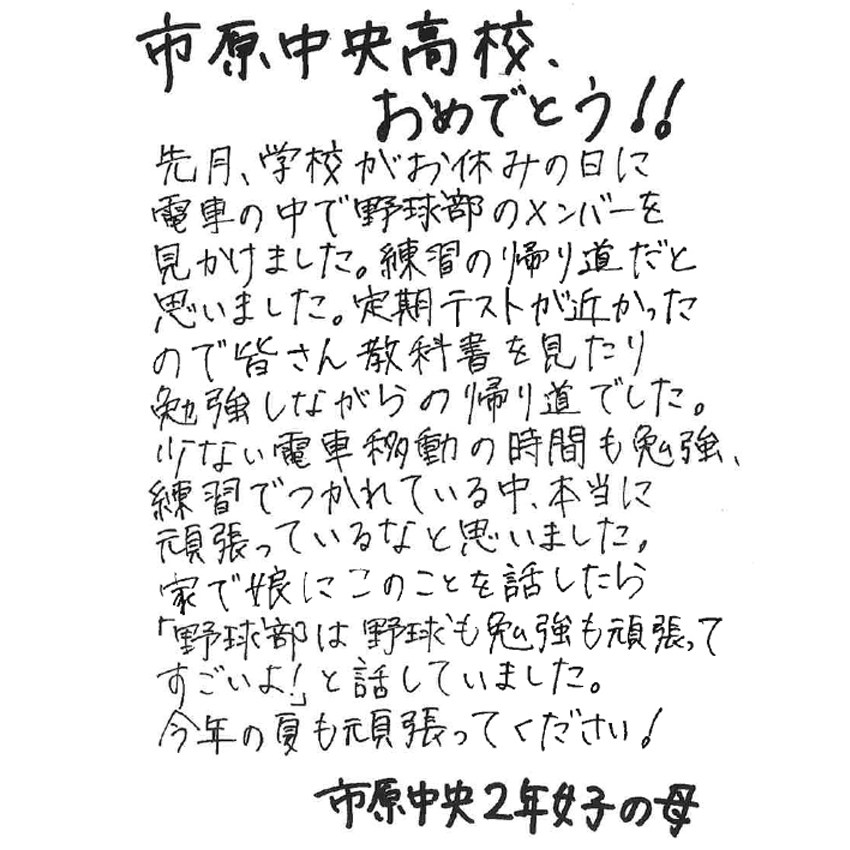 市原中央高校、
おめでとう!!
先月、学校がお休みの日に
電車の中で野球部のメンバーを
見かけました。練習の帰り道だと
思いました。定期テストが近かった
ので皆さん教科書を見たり
勉強しながらの帰り道でした。
少ない電車移動の時間も勉強、
練習でつかれている中、本当に
頑張っているなと思いました。
家で娘にこのことを話したら
「野球部は野球も勉強も頑張って
すごいよ!」と話していました。
今年の夏も頑張ってください!
市原中央2年女子の母